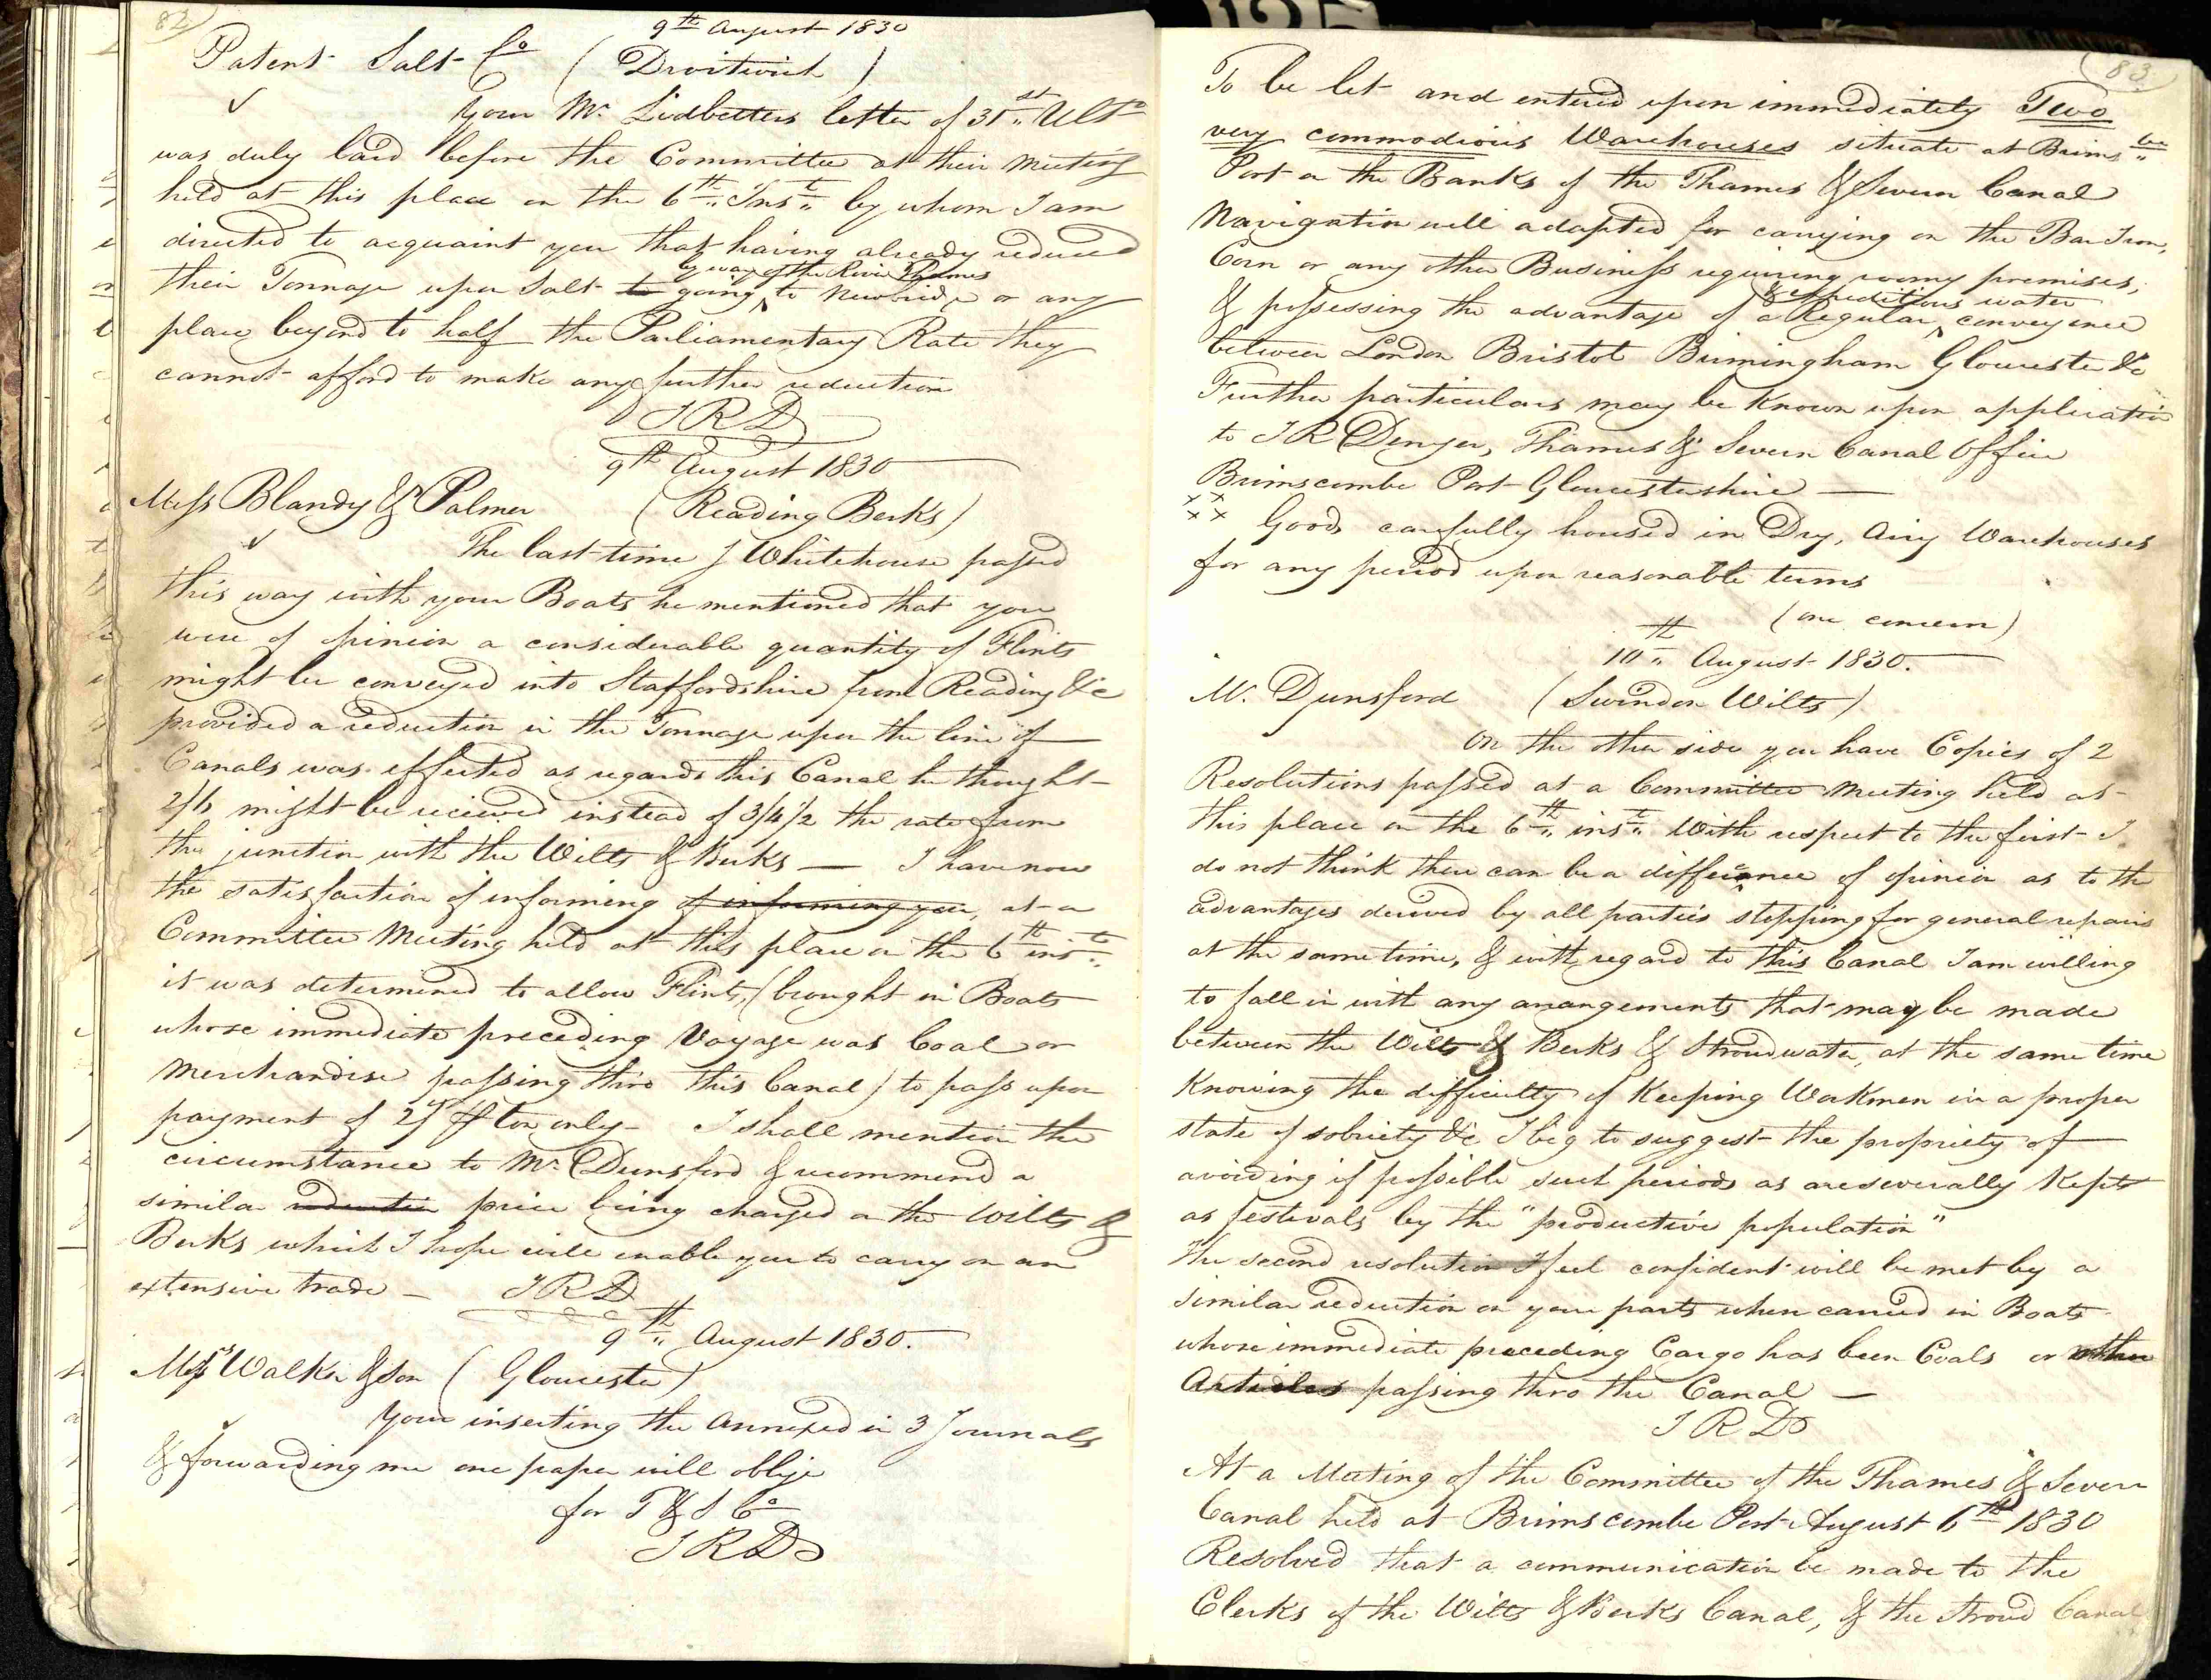 82
9th August 1830
Patent Salt Co (Droitwich)
Your Mr. Lidbetters letter of 31st Ulto
was duly laid before the Committee at their meeting
held at this place on the 6th Inst by whom I am
directed to acquaint you that having already reduced
by way of the River Thames
their Tonnage upon Salt to going to Newbridge or any
place beyond to half the Parliamentary Rate they
cannot afford to make any further reduction
JRD
9th August 1830
Messrs Blandy & Palmer (Reading Berks)
The last time J Whitehouse passed
this way with your Boats he mentioned that you
were of opinion a considerable quantity of Flints
might be conveyed into Staffordshire from Reading &c
provided a reduction in the Tonnage upon the line of
Canals was effected as regards this Canal he thought
2/6 might be received instead of 3/4½ the rate from
the junction with the Wilts & Berks — I have now
the satisfaction of informing of informing you, at a
Committee Meeting held at this place on the 6th inst
it was determined to allow Flints, (brought in Boats
whose immediate preceding Voyage was Coal or
Merchandise passing thro this Canal) to pass upon
payment of 2/ ⅌ ton only — I shall mention the
circumstance to Mr. Dunsford & recommend a
similar reduction price being charged on the Wilts &
Berks which I hope will enable you to carry on an
extensive trade — JRD
9th August 1830.
Messrs Walker & Son (Gloucester)
Your inserting the Annexed in 3 Journals
& forwarding me one paper will oblige
for T & S Co
JRD
83
To be let and entered upon immediately Two
very commodious Warehouses situate at Brimsbe
Port on the Banks of the Thames & Severn Canal
Navigation well adapted for carrying on the Bar Iron,
Corn or any other Business requiring roomy premises,
& expeditious water
& possessing the advantage of a Regular conveyance
between London Bristol Birmingham Gloucester &c
Further particulars may be known upon application
to JR Denyer, Thames & Severn Canal Office
Brimscombe Port Gloucestershire —
xx xx Goods carefully housed in Dry, Airy Warehouses
for any period upon reasonable terms
(one concern)
10th August 1830.
Mr. Dunsford (Swindon Wilts)
On the other side you have Copies of 2
Resolutions passed at a Committee Meeting held at
this place on the 6th inst With respect to the first I
do not think there can be a difference of opinion as to the
advantages derived by all parties stopping for general repairs
at the same time, & with regard to this Canal I am willing
to fall in with any arrangements that may be made
between the Wilts & Berks & Stroudwater, at the same time
Knowing the difficulty of Keeping Workmen in a proper
state of sobriety &c I beg to suggest the propriety of
avoiding if possible such periods as are severally Kept
as festivals by the "productive population"
The second resolution I feel confident will be met by a
similar reduction on your parts when carried in Boats
whose immediate preceding Cargo has been Coals or other
Articles passing thro the Canal —
JRD
At a Meeting of the Committee of the Thames & Severn
Canal held at Brimscombe Port August 6th 1830
Resolved that a communication be made to the
Clerks of the Wilts & Berks Canal, & the Stroud Canal